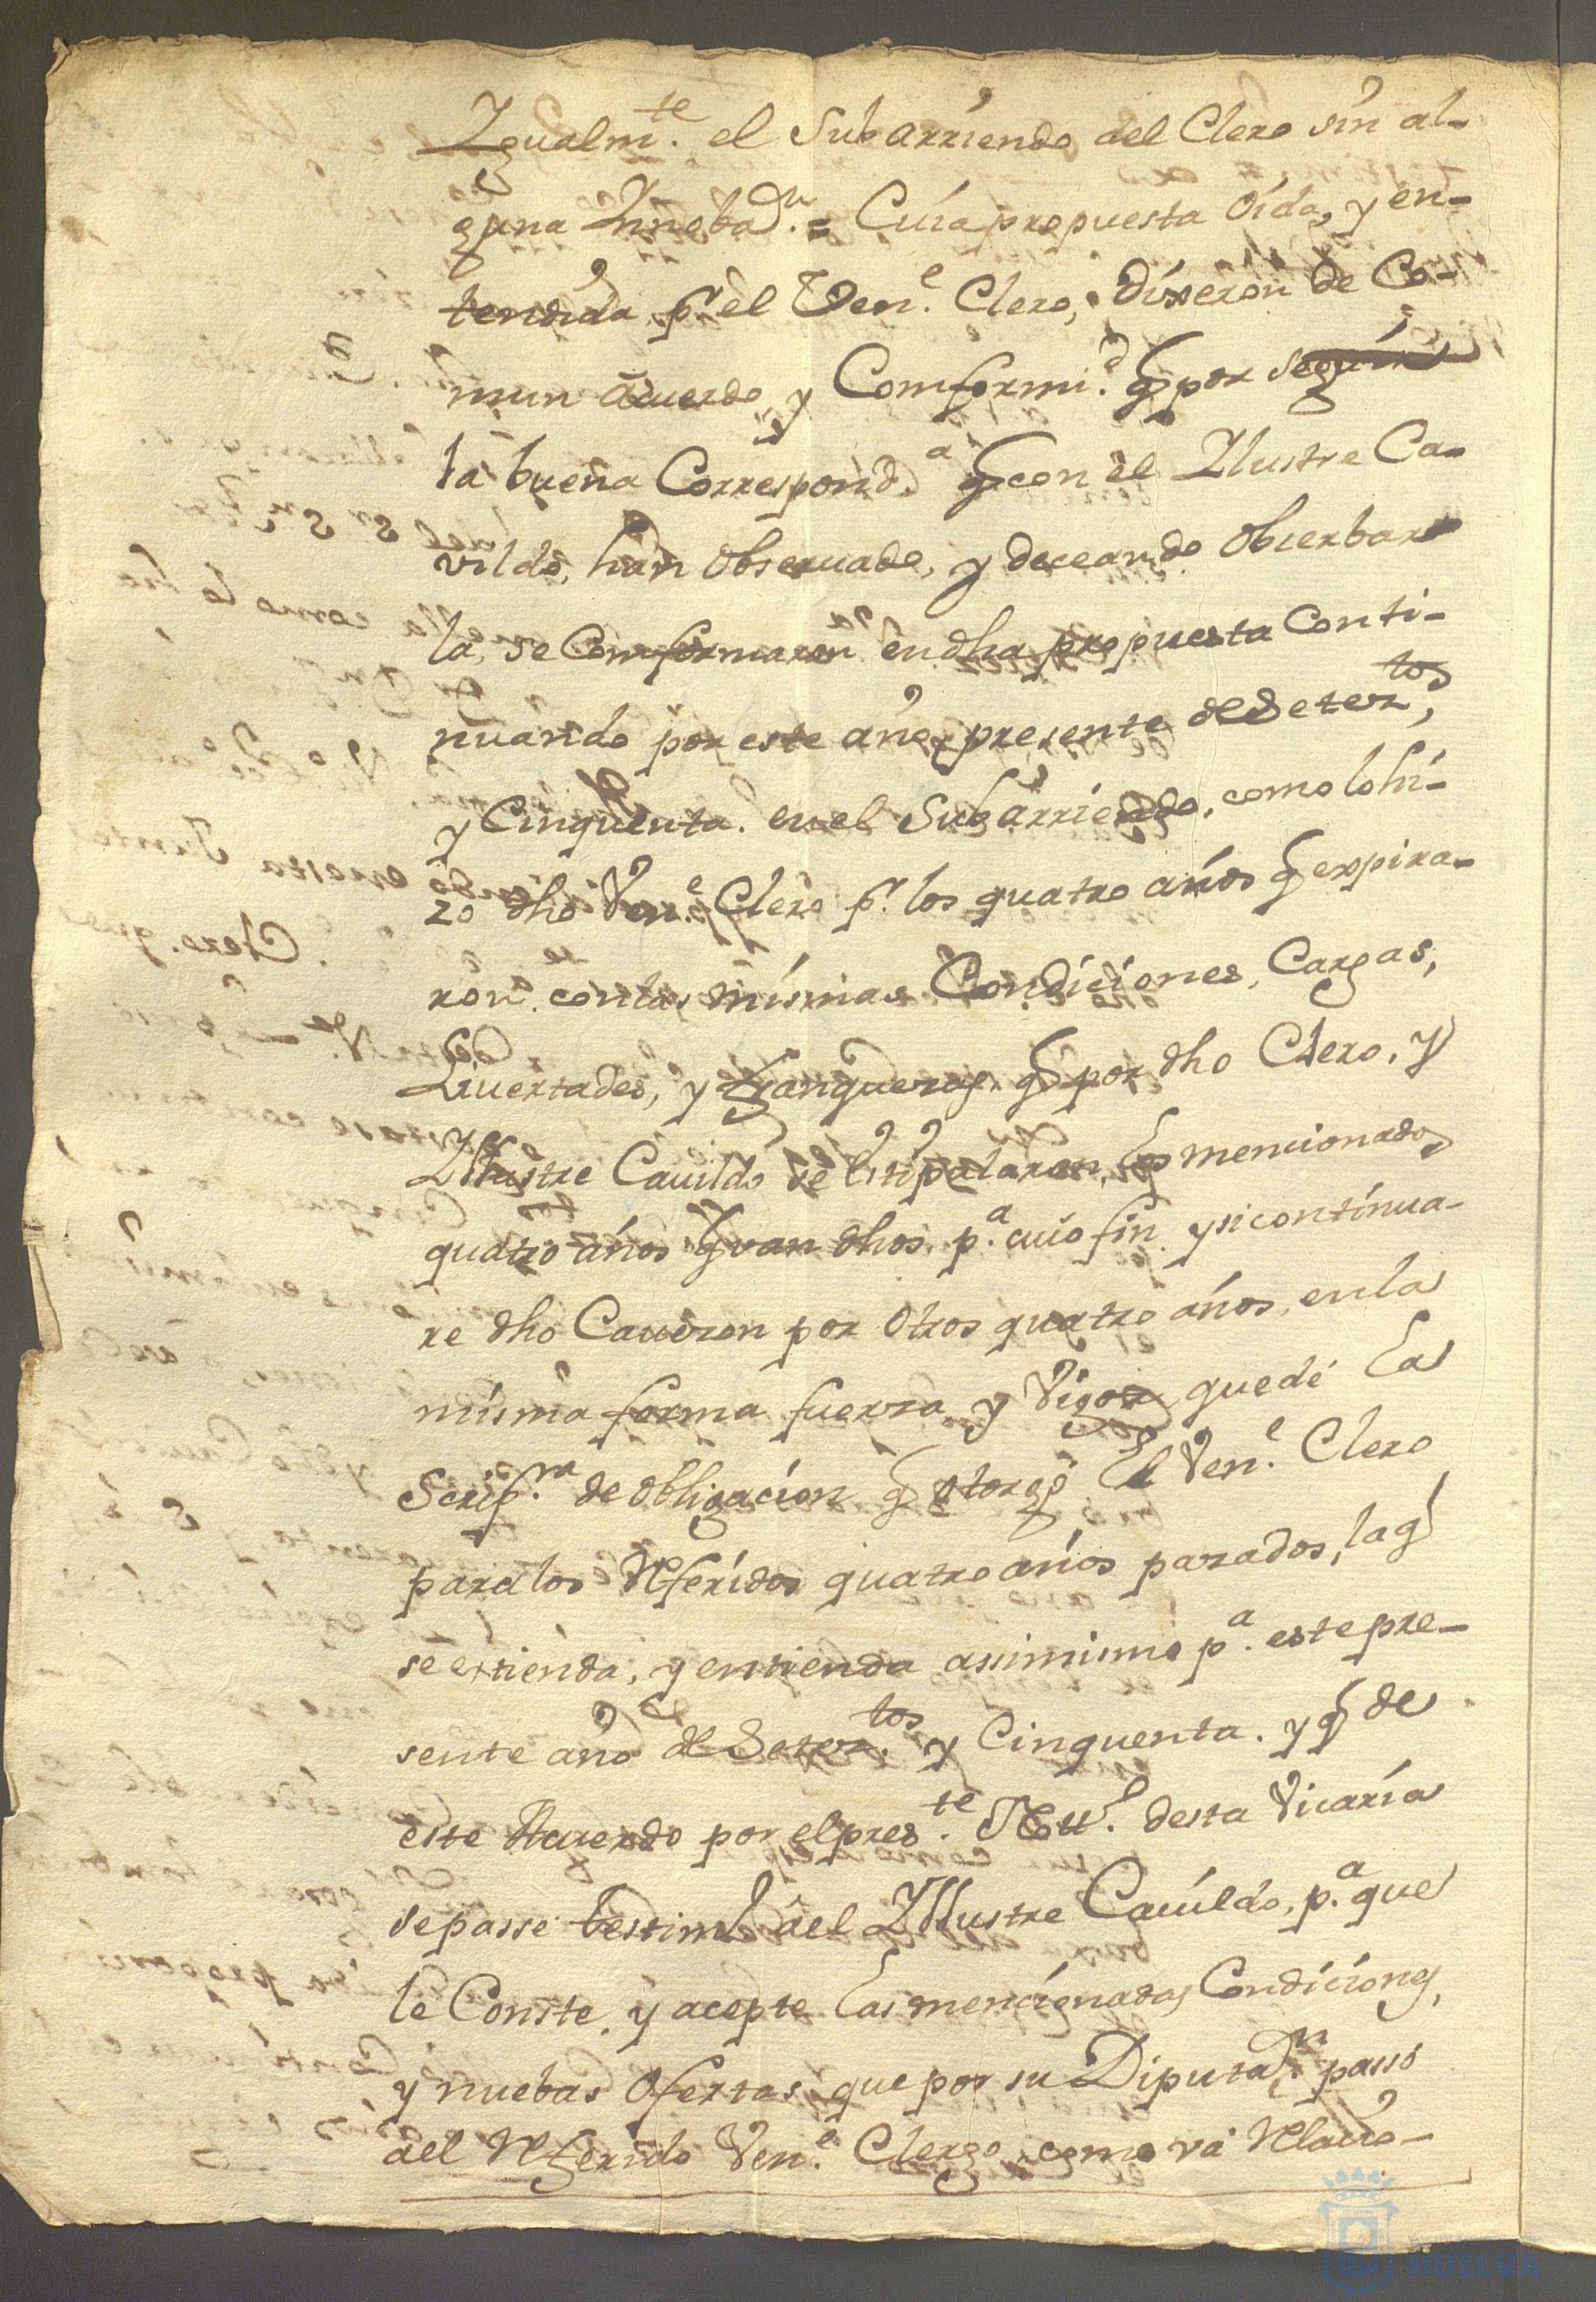 Ygualmte. el Subarriendo del Clero sin al-
guna Ynnobadn. = Cuia propuesta oida, y en-
tendida pr. el Vene. Clero, dixeron de Co-
mun acuerdo y Comformid. q por seguir
la buena Correspond.a q con el Ylustre Ca-
vildo, han observado, y deceando obserbar
la, se Comformaron en dha propuesta Conti-
nuando por este año presente de Setez.tos,
y Cinquenta. en el Subarriendo, como lo hi-
zo dho Ven.e Clero pr. los quatro años q expira-
ron. con las mismas Condiciones, Cargas,
Livertades, y franquezas, q por dho Clero, y
Yllustre Cavildo se estipularon, los mencionados
quatro años q van dhos. p.a cuio fin y si continua-
re dho Cavezon por otros quatro años, en la
misma forma fuerza y Vigor quede La
Scrip.ra de obligacion q otorgo El Ven.e Clero
para los Referidos quatro años pazados, la q
se extienda, y entienda assimismo p.a este pre-
sente año de Setez.tos y Cinquenta. y q de
este Acuerdo por el pres.te Nott.o desta Vicaria
se passe testim.o al Yllustre Cavildo, p.a que
le Conste, y acepte Las mencionadas Condiciones,
y nuebas Ofertas que por su Diputa.n passó
al Referido Ven.e Clero, como vá Relacio-
HUELVA